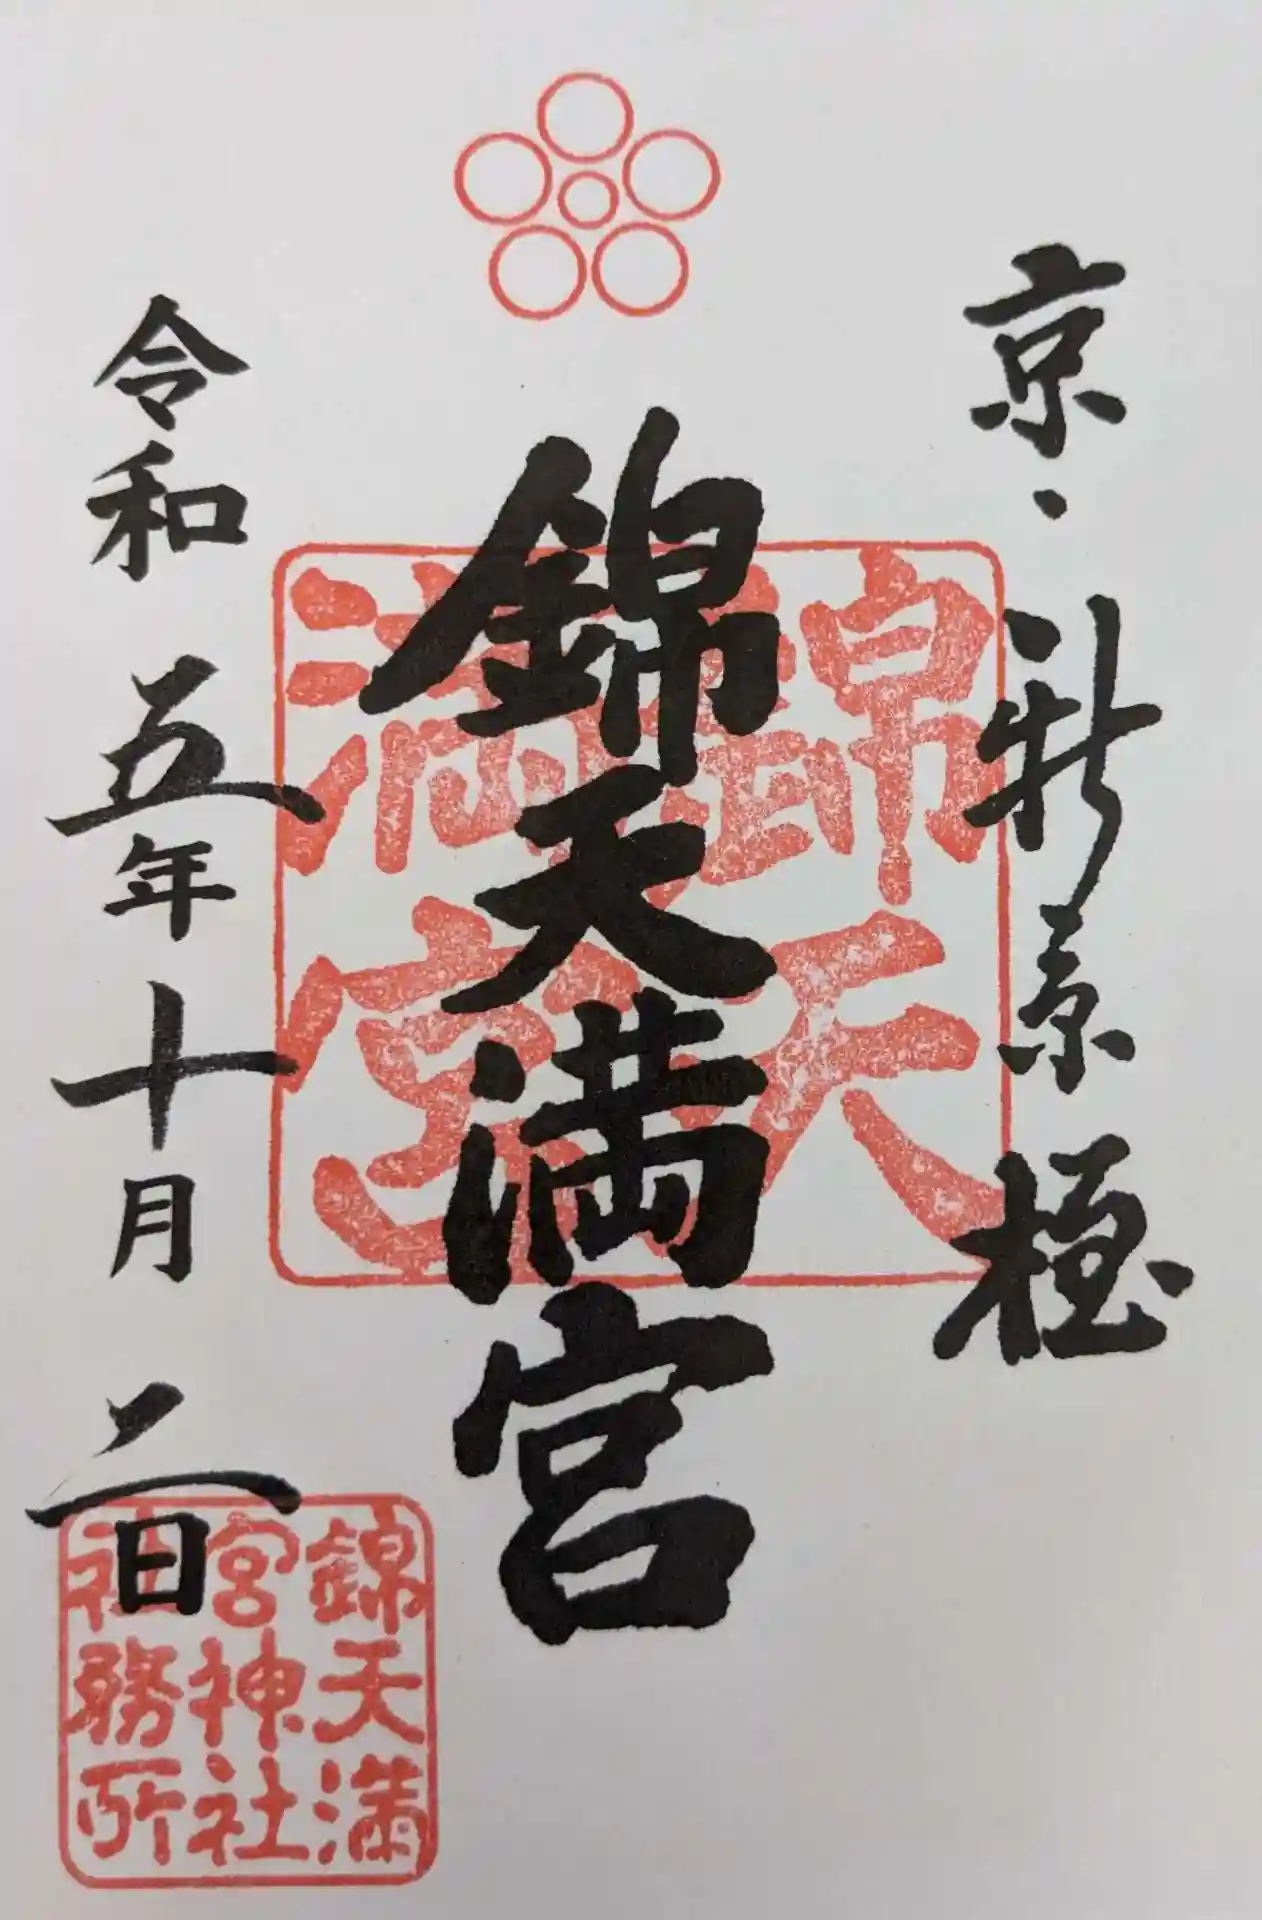 京・新京極
錦天満宮
錦天
満宮
令和五年十月二日
錦天満
宮神社
社務所